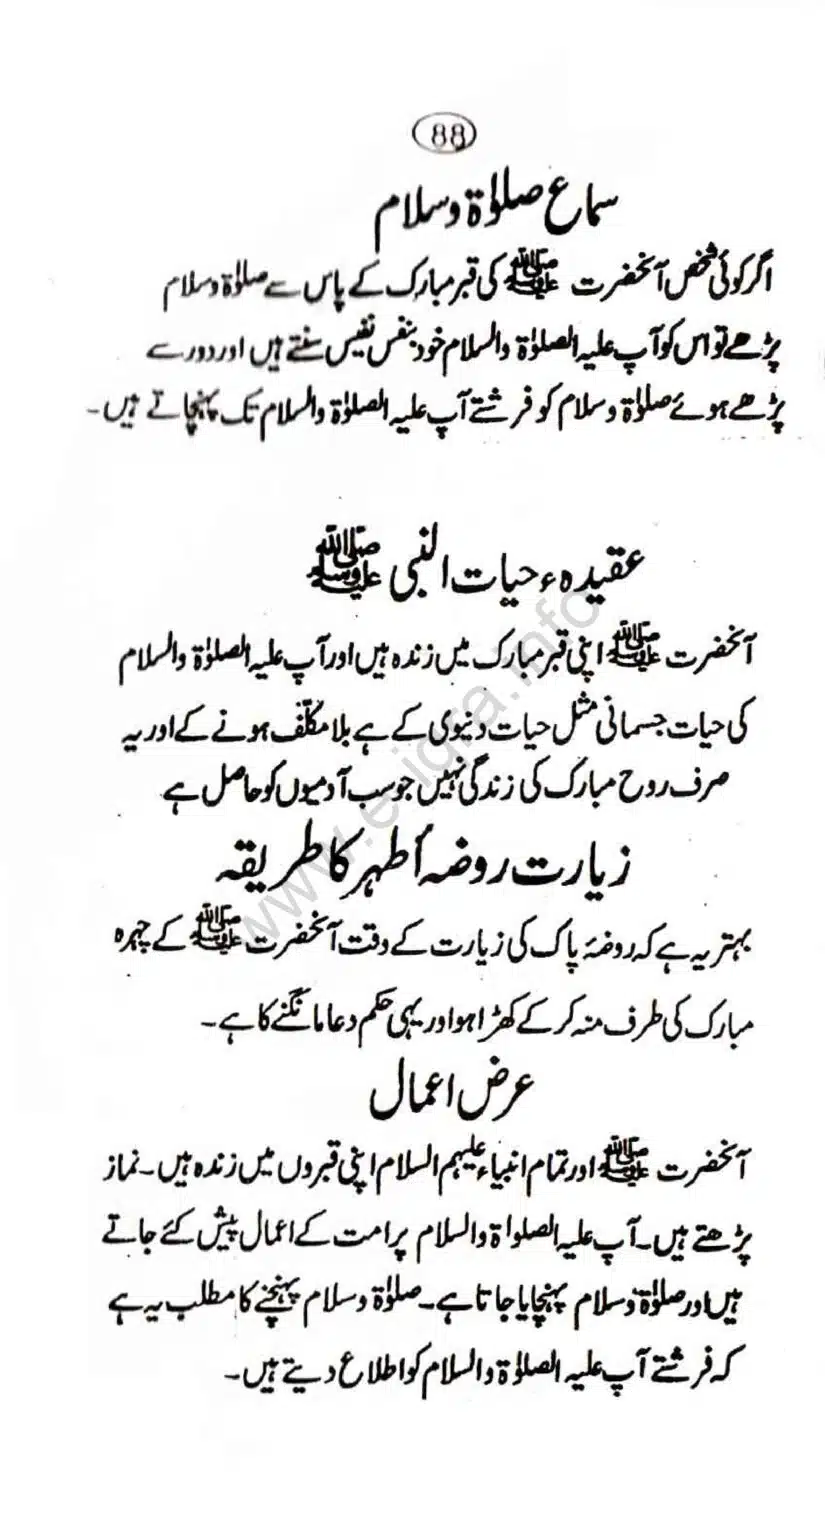 88
سماع صلوٰۃ وسلام
اگر کوئی شخص آنحضرت ﷺ کی قبر مبارک کے پاس سے صلوٰۃ وسلام
پڑھے تو اس کو آپ علیہ الصلوٰۃ والسلام خود بنفس نفیس سنتے ہیں اور دور سے
پڑھے ہوئے صلوٰۃ وسلام کو فرشتے آپ علیہ الصلوٰۃ والسلام تک پہنچاتے ہیں۔
عقیدہء حیات النبی ﷺ
آنحضرت ﷺ اپنی قبر مبارک میں زندہ ہیں اور آپ علیہ الصلوٰۃ والسلام
کی حیات جسمانی مثل حیات دنیوی کے ہے بلا مکلّف ہونے کے اور یہ
صرف روح مبارک کی زندگی نہیں جو سب آدمیوں کو حاصل ہے
زیارت روضہ أطہر کا طریقہ
بہتر یہ ہے کہ روضۂ پاک کی زیارت کے وقت آنحضرت ﷺ کے چہرہ
مبارک کی طرف منہ کر کے کھڑا ہو اور یہی حکم دعا مانگنے کا ہے۔
عرض اعمال
آنحضرت ﷺ اور تمام انبیاء علیہم السلام اپنی قبروں میں زندہ ہیں۔ نماز
پڑھتے ہیں۔ آپ علیہ الصلواۃ والسلام پر امت کے اعمال پیش کئے جاتے
ہیں اور صلوٰۃ وسلام پہنچایا جاتا ہے۔ صلوٰۃ وسلام پہنچنے کا مطلب یہ ہے
کہ فرشتے آپ علیہ الصلوٰۃ والسلام کو اطلاع دیتے ہیں۔
www.e-iqra.info